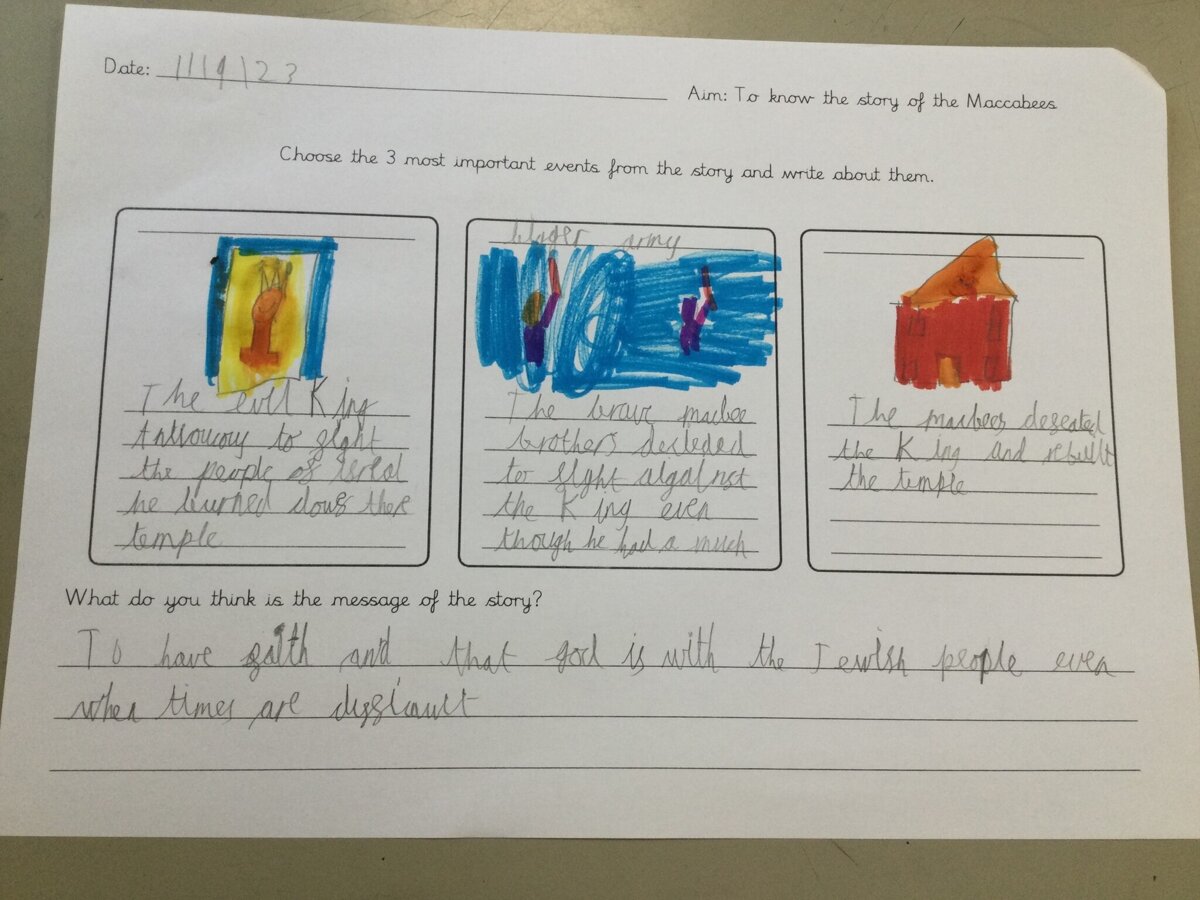 Date: 11/9/23
Aim: To know the story of the Maccabees
Choose the 3 most important events from the story and write about them.
The evil King
to fight
the people of isreal
he burned down there
temple
bigger army
The brave macbee
brothers desieded
to fight algainst
the King even
though he had a much
The macbees defeated
the King and rebuilt
the temple
What do you think is the message of the story?
To have faith and that god is with the Jewish people even
when times are difficult